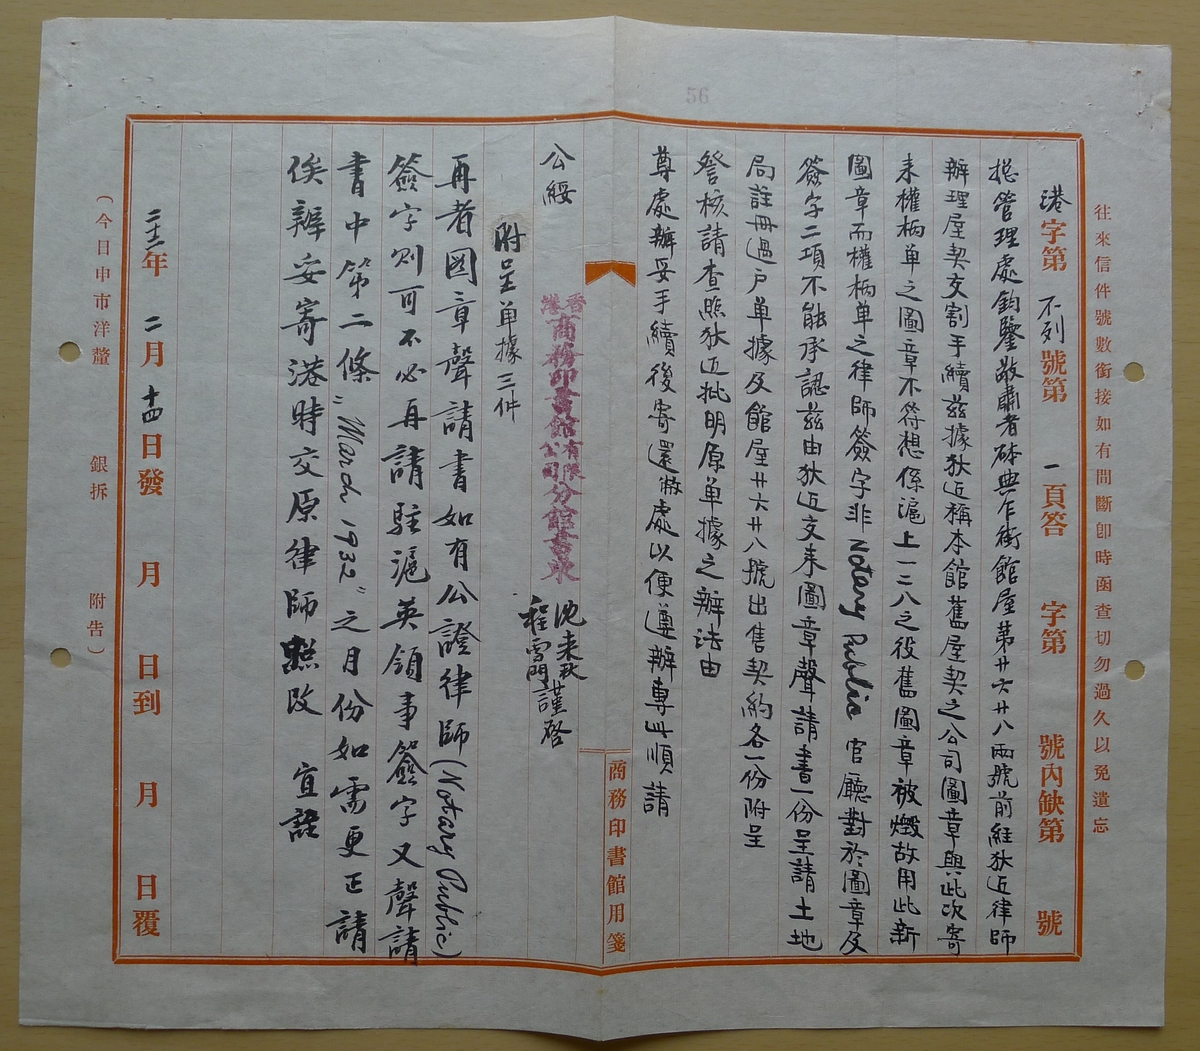 56
往來信件號數銜接如有間斷卽時函查切勿過久以免遺忘
港字第 不列 號第 一 頁答 字第 號內缺第 號
總管理處鈞鑒敬肅者砵典乍街館屋第廿六廿八兩號前經狄近律師
辦理屋契交割手續茲據狄近稱本館舊屋契之公司圖章與此次寄
來權柄单之圖章不符想係滬上一二八之役舊圖章被燬故用此新
圖章而權柄单之律師簽字非 Notary Public 官廳對於圖章及
簽字二項不能承認茲由狄近交來圖章聲請書一份呈請土地
局註冊過户单據及館屋廿六廿八號出售契約各一份附呈
詧核請查照狄近批明原单據之辦法由
尊處辦妥手續後寄還敝處以便遵辦專此順請
公綏
香港商務印書館有限公司分館書柬
沈來秋
程雪門謹啓
附呈单據三件
再者圖章聲請書如有公證律師(Notary Public)
簽字則可不必再請駐滬英領事簽字又聲請
書中第二條"March 1932"之月份如需更正請
俟辦妥寄港時交原律師照改 宜註
二十二年 二月 十四日發 月 日到 月 日覆
(今日申市洋釐 銀拆 附告)
商務印書館用箋